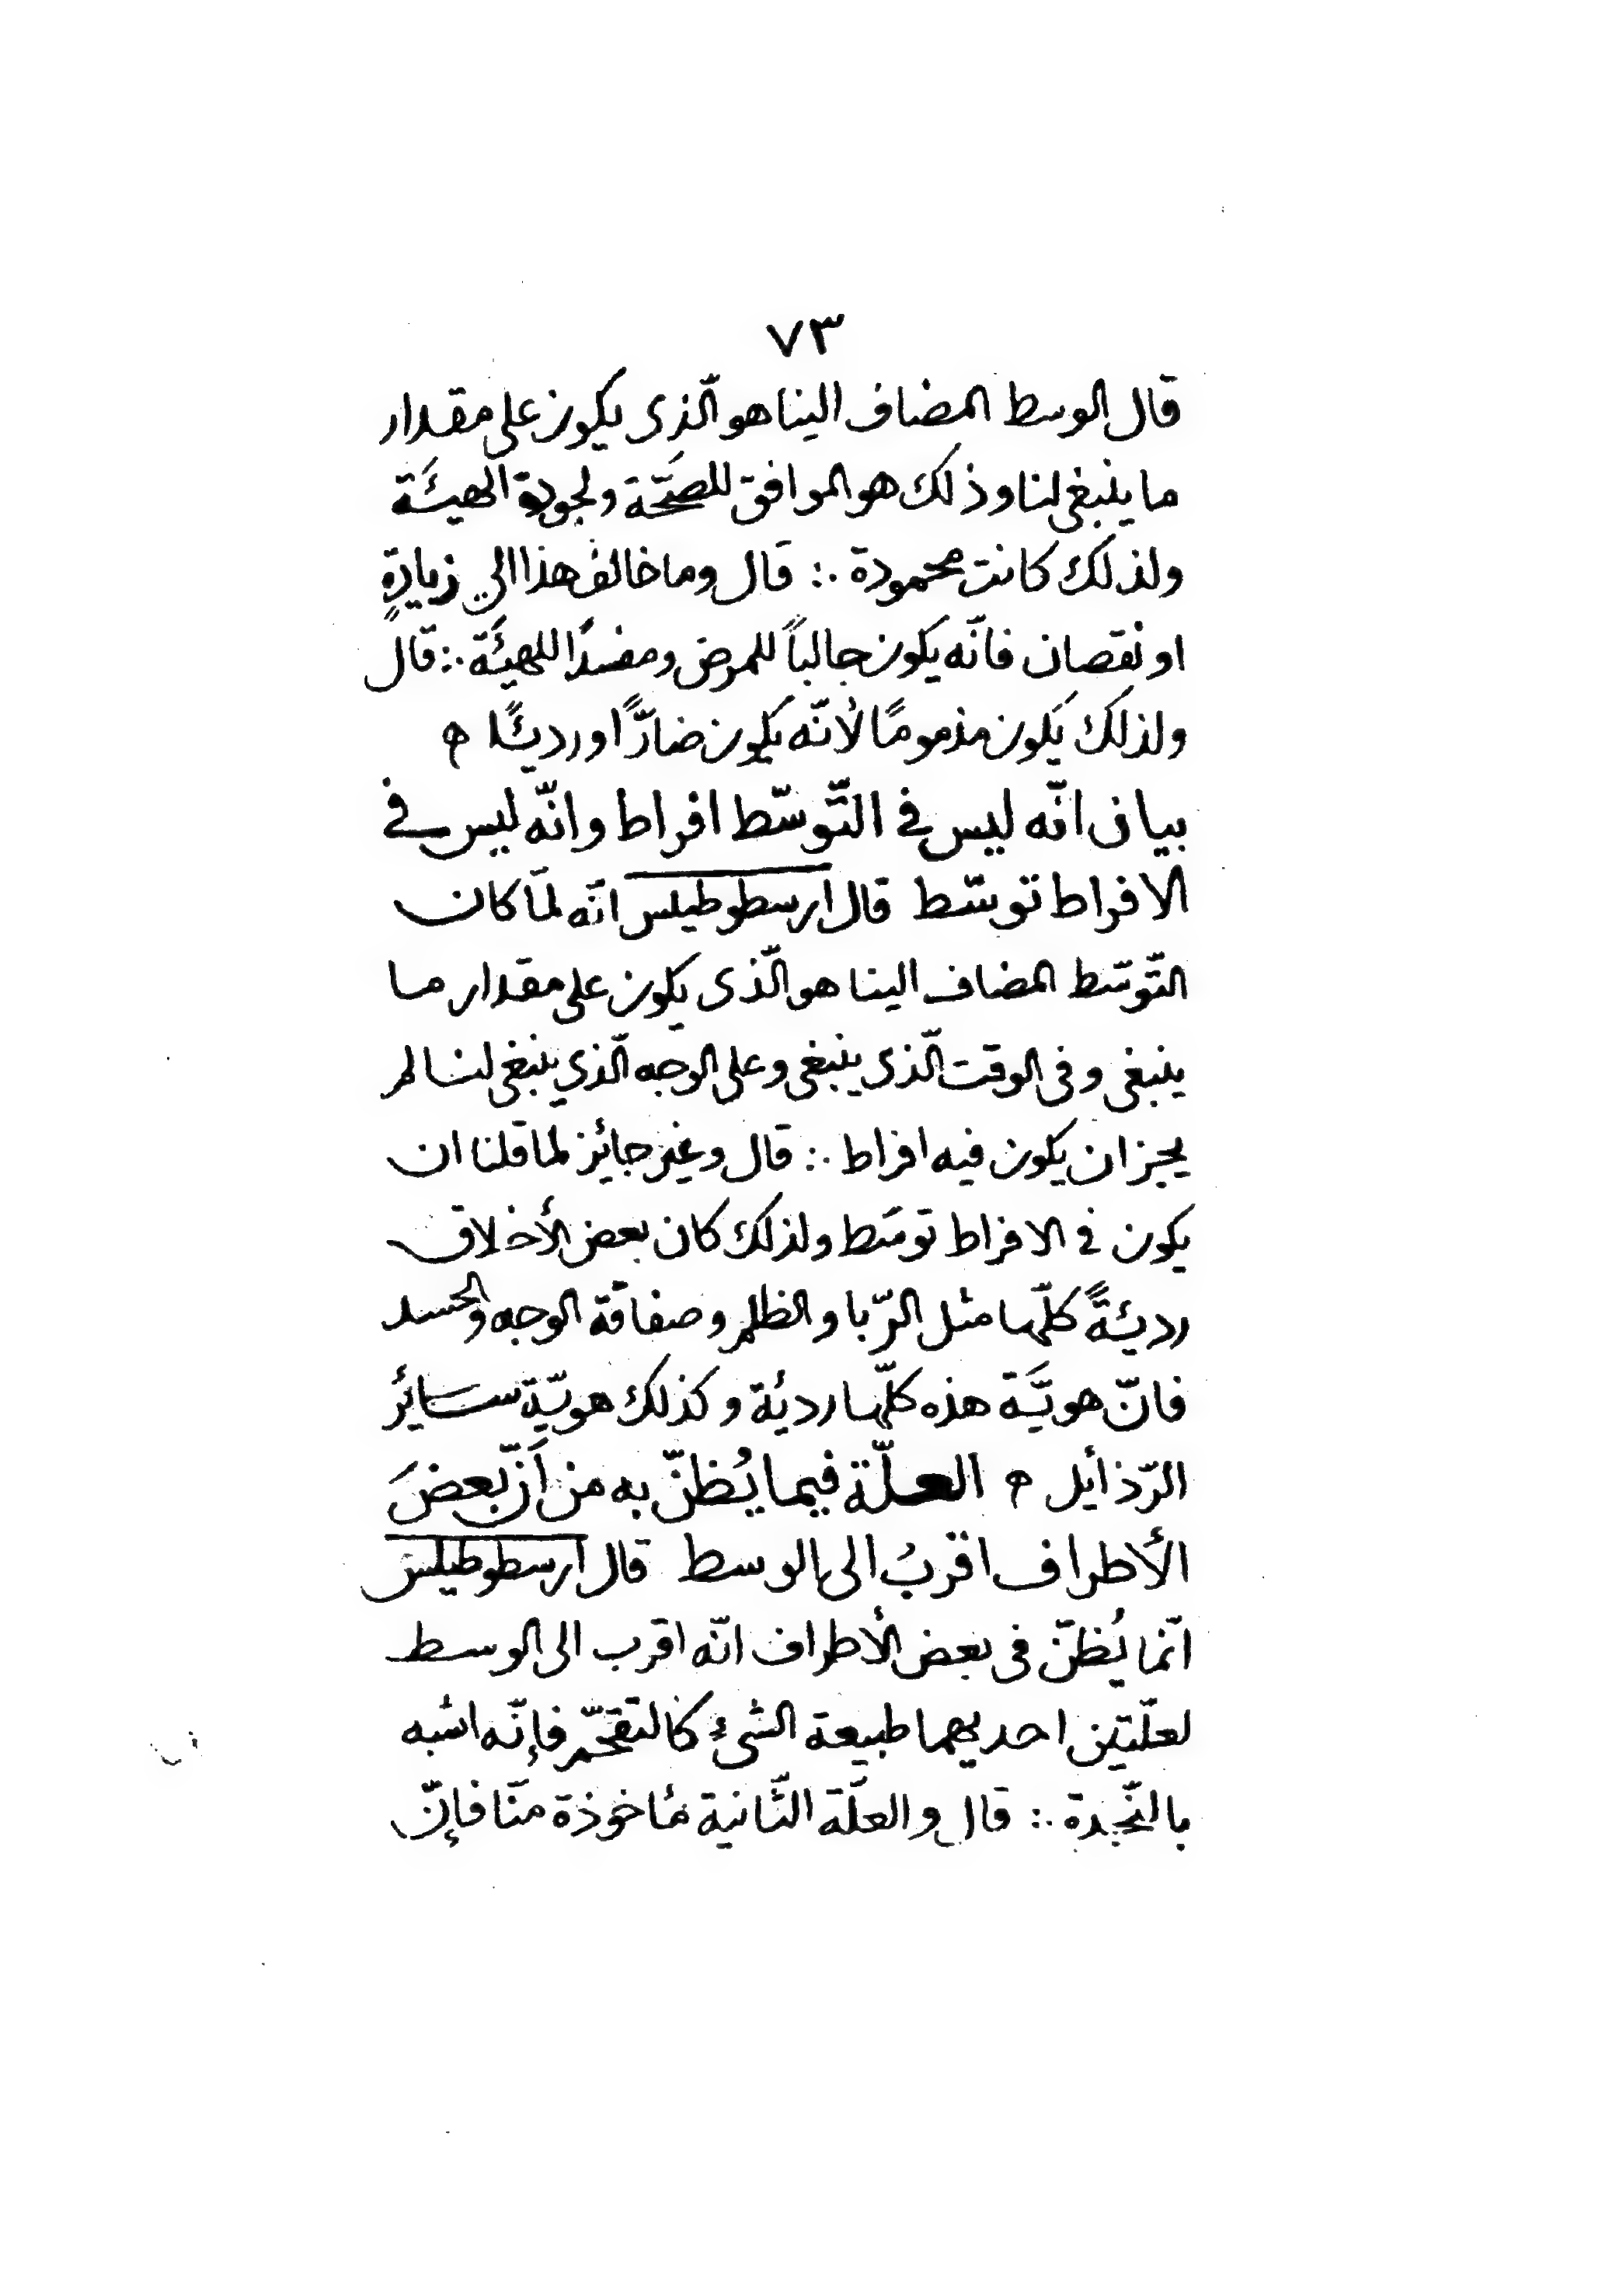 ٧٣
قال الوسط المضاف الينا هو الّذى يكون على مقدار
ما ينبغى لنا وذلك هو الموافق للصّحّة ولجودة الهيئة
ولذلك كانت محمودة ∴ قال وما خالف هذا الي زيادةٍ
او نقصان فانّه يكون جالباً للمرض ومفسدًا للهيئة ∴ قال
ولذلك يكون مذمومًا لأنّه يكون ضارًّا او رديئًا ه
بيان انّه ليس فى التّوسّط افراط وانّه ليس فى
الافراط توسّط قال ارسطوطيلس انّه لمّا كان
التّوسّط المضاف الينا هو الّذى يكون على مقدار ما
ينبغى وفى الوقت الّذى ينبغى وعلى الوجه الّذي ينبغى لنا لم
يجز ان يكون فيه افراط ∴ قال وغير جائيز لما قلنا ان
يكون فى الافراط توسّط ولذلك كان بعض الأخلاق
رديئةً كلّها مثل الرّبا والظلم وصفاقة الوجه والحسد
فانّ هويّة هذه كلّها رديئة وكذلك هويّة سائر
الرّذأيل ه العلّة فيما يُظنّ به من أنّ بعضَ
الأطراف اقربُ الى الوسط قال ارسطوطيلس
انّما يُظنّ فى بعض الأطراف انّه اقرب الى الوسط
لعلّتين احديهما طبيعة الشىءِ كالتقحّم فإنّه اشبه
بالنّجدة ∴ قال والعلّة الثّانية مأخوذة منّا فإنّ